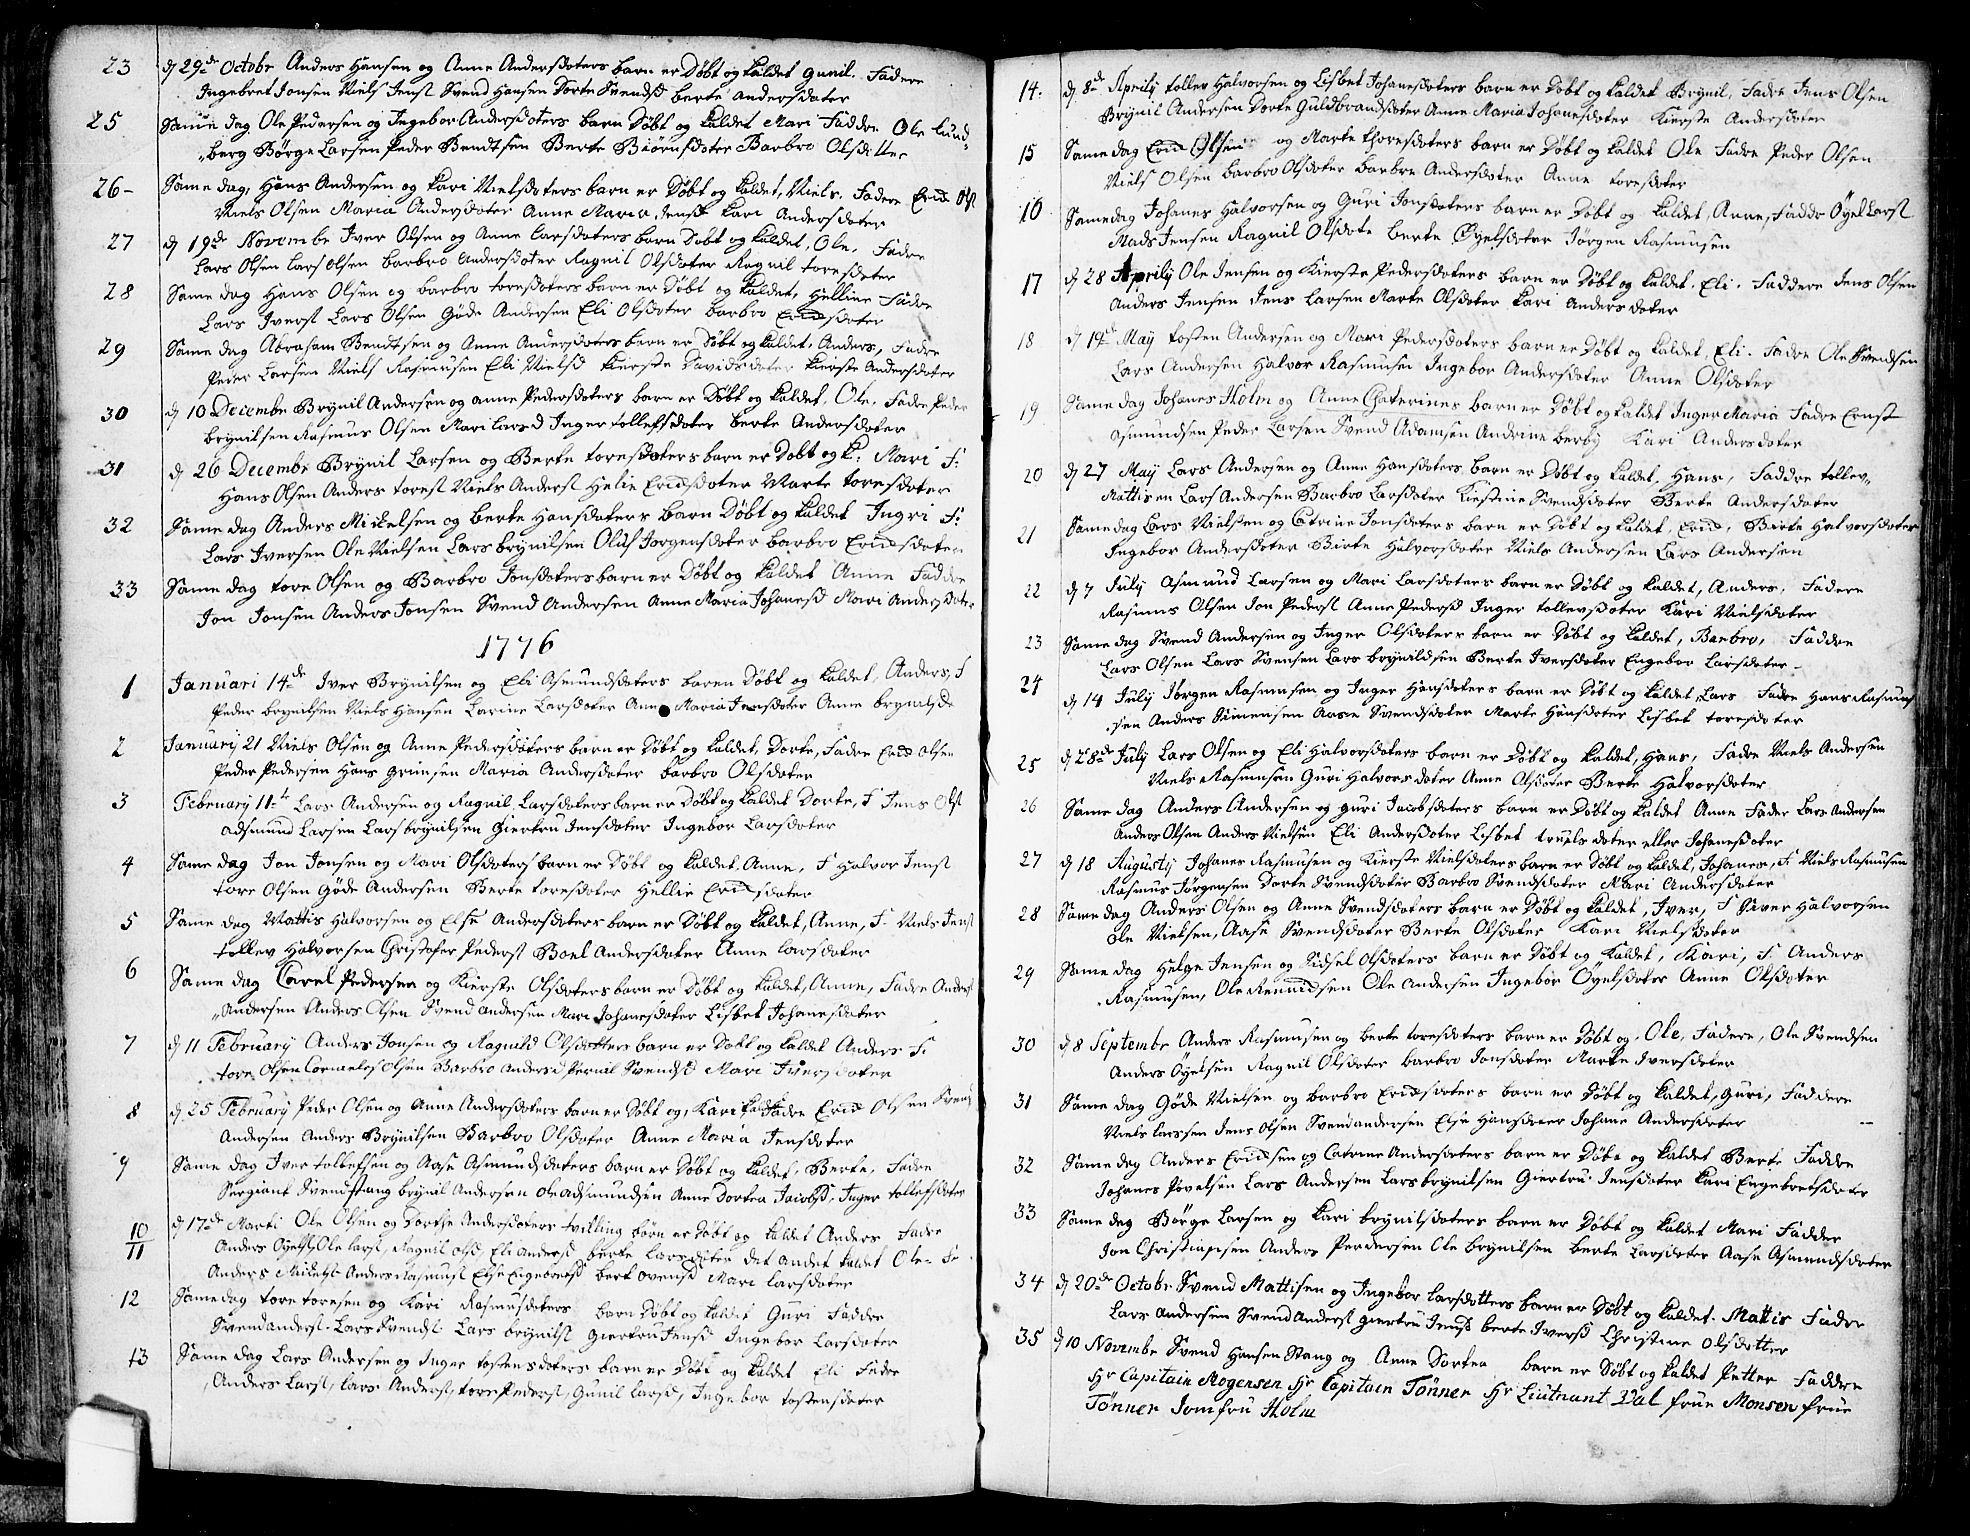 23 d 29de Octobr Anders Hansen og Anne Andersdoters barn er Døbt og kaldet Gunil. Fadere
Ingebret Jonsen Niels Jenst Svend Hansen Dorte Svendsd berte Andersdater
25 Same dag Ole Pedersen og Ingebor Andersdoters barn Døbt og kaldet Mari Faddre Ole Lund-
berg Børge Larsen Peder Bendtsen Berte Biørnsdoter Barbro Olsdatter
26 Same dag, Hans Andersen og Kari Nielsdoters barn er Døbt og kaldet, Niels. Fadere Erich Olst
Niels Olsen Maria Andersdater Anne Maria Jensd Kari Andersdater
27 d 19de Novembr Iver Olsen og Anne Larsdoters barn Døbt og kaldet, Ole. Fadre
Lars Olsen Lars Olsen Barbro Andersdoter Ragnil Olsdoter Ragnil toresdater
28 Same dag Hans Olsen og barbro toresdoters barn er Døbt og kaldet, Helline Fadre
Lars Iverst Lars Olsen Gøde Andersen Eli Olsdoter barbro Erichsdater
29 Same dag Abraham Bendtsen og Anne Andersdoters barn er Døbt og kaldet, Anders, Fadre
Peder Larsen Niels Rasmusen Eli Nielsd Kierste Davidsdater Kierste Andersdater
30 d 10 Decembr Brynil Andersen og Anne Pedersdoters barn er Døbt og kaldet, Ole. Fadre Peder
brynilsen Rasmus Olsen Mari Larsd Inger tollefsdater berte Andersdater
31 d 26 Decembr Brynil Larsen og Berte toresdoters barn er Døbt og k: Mari F:
Hans Olsen Anders torest Niels Anderst Helie Erichsdoter Marte toresdoter
32 Same dag Anders Mickelsen og berte Hansdoters barn Døbt og kaldet Ingri F:
Lars Iversen Ole Nielsen Lars brynilsen Oluf Jørgensdoter barbro Erichsdater
33 Same dag tore Olsen og Barbro Jonsdoters barn er Døbt og kaldet Anne Faddre
Jon Jonsen Anders Jonsen Svend Andersen Anne Maria Johanesd Mari Andersdoter
1776
1 Januari 14de Iver Brynilsen og Eli Asmundsdoters baren Døbt og kaldet, Anders, F
Peder brynilsen Niels Hansen Larine Larsdoter Anne Maria Jensdoter Anne brynilsd
2 Januarij 21 Niels Olsen og Anne Pedersdoters barn er Døbt og kaldet, Dorte, Fadre Erich Olsen
Peder Pedersen Hans Grimsen Maria Andersdoter barbro Olsdater
3 February 11te Lars Andersen og Ragnil Larsdoters barn er Døbt og kaldet Dorte, F Jens Olst
Adsmund Larsen Lars brynilsen Giertru Jensdater Ingebor Larsdater
4 Same dag Jon Jonsen og Mari Olsdoters barn er Døbt og kaldet, Anne, F Halvor Jenst
tore Olsen Gøde Andersen Berte toresdater Hellie Erichsdater
5 Same dag Mattis Halvorsen og Else Andersdoters barn er Døbt og kaldet, Anne, F Niels Jenst
tollev Halvorsen Christofer Pederst Boel Andersdater Anne Larsdater
6 Same dag Carel Pedersen og Kierste Olsdoters barn er Døbt og kaldet, Anne, Fadre Anderst
Andersen Anders Olsen Svend Andersen Mari Johanesdoter Lisbet Johanesdater
7 d 11 February Anders Jonsen og Ragnild Olsdatters barn er Døbt og kaldet Anders F.
tore Olsen Cornelys Olsen Barbro Andersd Pernil Svendsd Mari Iversdater
8 d 25 February Peder Olsen og Anne Andersdoters barn er Døbt og, Kari kaldet Fadre Erich Olsen Svend
Andersen Anders Brynilsen Barbro Olsdater Anne Maria Jensdater
9 Same dag Iver tollefsen og Aase Asmundsdoters barn er Døbt og kaldet, Berte, Fadre
Sergiant Svend stang brynil Andersen Ole Adsmundsen Anne Dortea Jacobsd Inger tollefsdoter
10/11 d 17de Marti Ole Olsen og Dortje Andersdoters tvilling børn er Døbt og kaldet Anders Fadre
Anders Øyelst, Ole Larst, Ragnil Olsd Eli Andersd berte Larsdoter det andet kaldet Ole F
Anders Mickelst Anders Rasmust Else Engebretsd beret ovensd Mari Larsdater
12 Same dag tore toresen og Kari Rasmusdoters barn Døbt og kaldet Guri Faddre
Svend Anderst Lars Svendst Lars brynilst Giertru Jensd Ingebor Larsdater
13 Same dag Lars Andersen og Inger tostensdoters barn er Døbt og kaldet Eli Fadre
Anders Larst, Lars Anderst, tore Pederst, Gunil Larsd, Ingebor tostensdater
14. d. 8de Aprily tollev Halvorsen og Lisbet Johanesdoters barn er Døbt og kaldet Brynil, Fadre Jens Olsen
Brynil Andersen Dorte Guldbrandsdoter Anne Maria Johanesdoter Kierste Andersdater
15 Same dag Erich Olsen og Marte thoresdoters barn er Døbt og kaldet Ole Fadre Peder Olsen
Niels Olsen barbro Olsdoter barbro Andersdoter Anne toresdoter
16 Same dag Johanes Halvorsen og Guri Jonsdoters barn er Døbt og kaldet, Anne, Faddr Øyel Larst
Mads Jensen Ragnil Olsdote berte Øyelsdoter Jørgen Rasmusen
17 d 28 Aprily Ole Jensen og Kierste Pedersdoters barn er Døbt og kaldet. Eli. Faddere Jens Olsen
Anders Jensen Jens Larsen Marte Olsdoter Kari Andersdater
18 d 19de May tosten Andersen og Mari Pedersdoters barn er Døbt og kaldet, Eli. Fadre Ole Svendsen
Lars Andersen Halvor Rasmusen Ingebor Andersdoter Anne Olsdoter
19 Same dag Johanes Holm og Anne Chaterines barn er Døbt og kaldet Inger Maria Fadre Ernst
Asmundsen Peder Larsen Svend Adamsen Andrine berby Kari Andersdoter
20 d 27 May Lars Andersen og Anne Hansdoters barn er Døbt og kaldet, Hans, Faddre tollev
Mattisen Lars Andersen Barbro Larsdoter Kiestine Svendsdoter Berte Andersdater
21 Same dag Lars Nielsen og Catrine Jonsdoters barn er Døbt og kaldet, Erich, Birte Halvorsdater
Ingebor Andersdoter Birte Halvorsdoter Niels Andersen Lars Andersen
22 d 7 July Asmund Larsen og Mari Larsdoters barn er Døbt og kaldet, Anders, Fadere
Rasmus Olsen Jon Pederst Anne Pedersd Inger tollevsdoter Kari Nielsdoter
23 Same dag Svend Andersen og Inger Olsdoters barn er Døbt og kaldet, Barbro, Faddre
Lars Olsen Lars Svensen Lars brynildsen Berte Iversdoter Engebor Larsdater
24 d 14 July Jørgen Rasmusen og Inger Hansdoters barn er Døbt og kaldet, Lars Fadre Hans Rasmus
sen Anders Simensen Aase Svendsdoter Marte Hansdoter Lisbet toresdoter
25 d 28de July Lars Olsen og Eli Halvorsdoters barn er Døbt og kaldet, Hans, Fadre Niels Andersen
Niels Rasmusen Guri Halvorsdoter Anne Olsdoter Berte Halvorsdoter
26 Same dag Anders Andersen og Guri Jacobsdoters barn er Døbt og kaldet Anne Fader Lars Andersen
Anders Olsen Anders Nielsen Eli Andersdoter Lisbet truelsdoter eller Johanesdoter
27 d 18 Augusty Johanes Rasmusen og Kierste Nielsdoters barn er Døbt og kaldet, Johanes, F. Niels Rasmusen
Rasmus Jørgensen Dorte Svendsdoter Barbro Svendsdoter Mari Andersdater
28 Same dag Anders Olsen og Anne Svendsdoters barn er Døbt og kaldet, Iver, F Siver Halvorsen
Ole Nielsen, Aase Svendsdoter Berte Olsdoter Kari Nielsdoter
29 Same dag Helge Jensen og Sidsel Olsdoters barn er Døbt og kaldet, Kari, F. Anders
Rasmusen, Ole Remmidsen Ole Andersen Ingebor Øyelsdoter Anne Olsdoter
30 d 8 Septembr Anders Rasmusen og berte toresdoters barn er Døbt og. Ole, Fadere, Ole Svendsen
Anders Øyelsen Ragnil Olsdoter barbro Jonsdoter Marte Iversdoter
31 Same dag Gøde Nielsen og barbro Erichsdoters barn er Døbt og kaldet, Guri, Faddere
Niels Larsen Jens Olsen Svend Andersen Else Hansdoter Johane Andersdoter
32 Same dag Anders Erichsen og Catrine Andersdoters barn er Døbt og kaldet Berte Faddre
Johanes Povelsen Lars Andersen Lars brynilsen Giertru Jensdoter Kari Engebretsdoter
33 Same dag Børge Larsen og Kari brynilsdoters barn er Døbt og kaldet Mari Fadder
Jon Christiansen Anders Perdersen Ole brynilsen berte Larsdoter Aase Asmundsdoter
34 d 20de Octobr Svend Mattisen og Ingebor Larsdotters barn er Døbt og kaldet. Mattis Fadre
Lars Andersen Svend Anderst giertru Jensd berte Iversd Christine Olsdotter
35 d 10 Novembr Svend Hansen Stang og Anne Dortea barn er Døbt og kaldet Petter Faddre
Hr Capitain Mogensen Hr Capitain Tønner Hr Liutnant Dal frue Monsen frue
Tønner Jomfru Holm